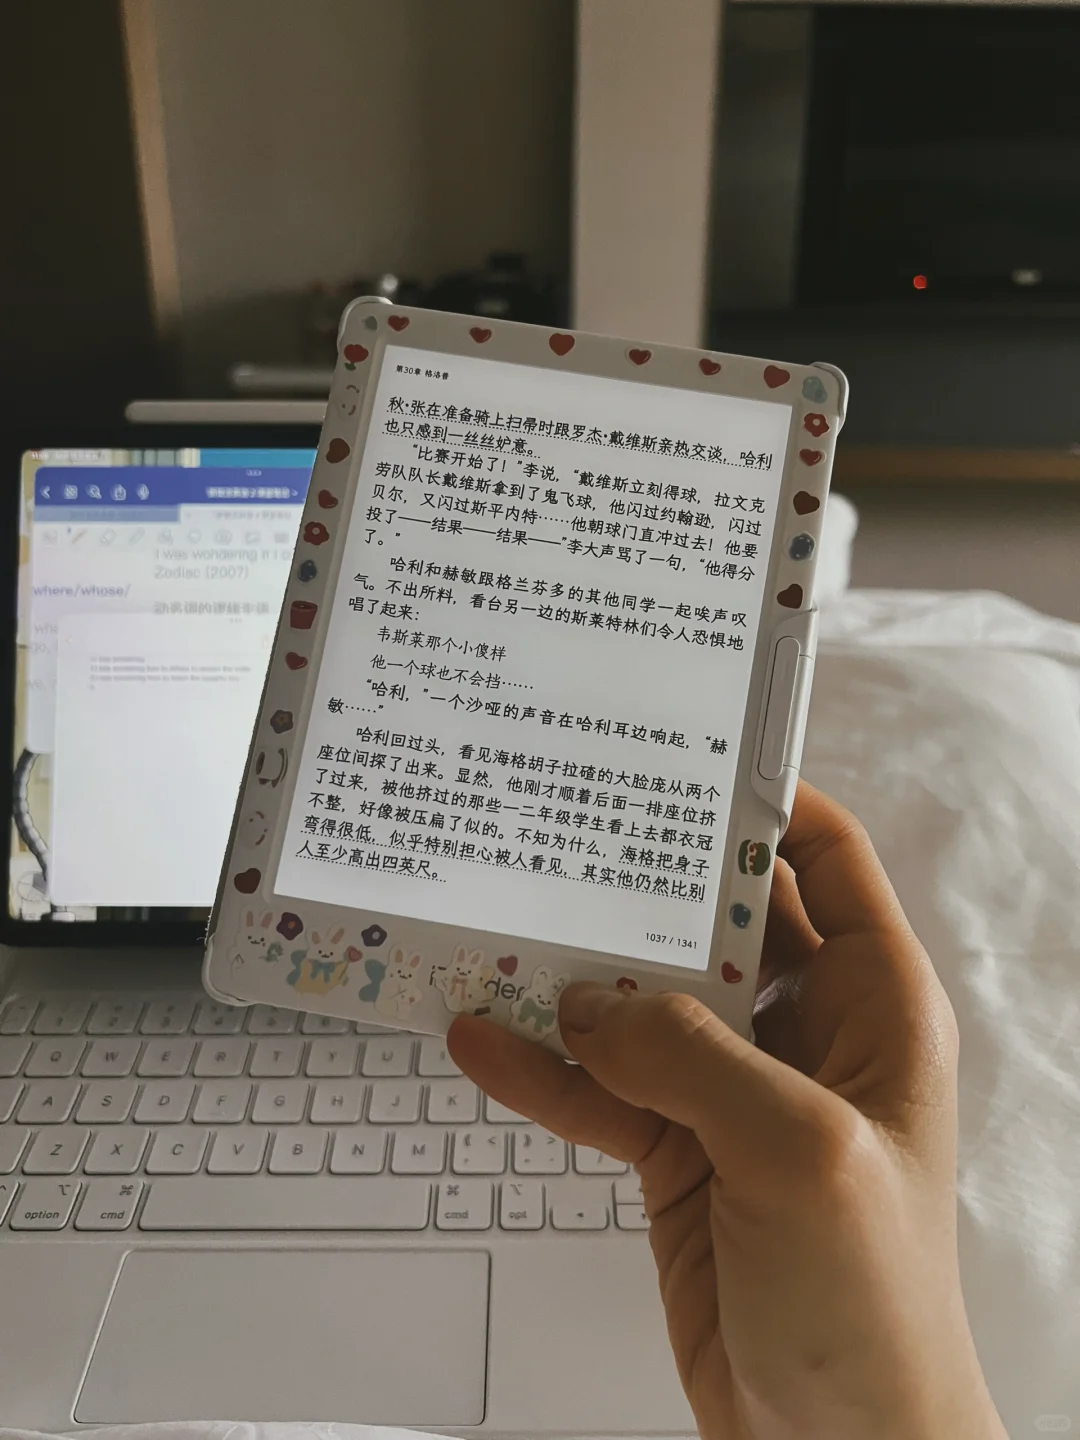 第30章 格洛普
秋·张在准备骑上扫帚时跟罗杰·戴维斯亲热交谈，哈利
也只感到一丝丝妒意。
“比赛开始了！”李说，“戴维斯立刻得球，拉文克
劳队队长戴维斯拿到了鬼飞球，他闪过约翰逊，闪过
贝尔，又闪过斯平内特……他朝球门直冲过去！他要
投了——结果——结果——”李大声骂了一句，“他得分
了。”
哈利和赫敏跟格兰芬多的其他同学一起唉声叹
气。不出所料，看台另一边的斯莱特林们令人恐惧地
唱了起来：
韦斯莱那个小傻样
他一个球也不会挡……
“哈利，”一个沙哑的声音在哈利耳边响起，“赫
敏……”
哈利回过头，看见海格胡子拉碴的大脸庞从两个
座位间探了出来。显然，他刚才顺着后面一排座位挤
了过来，被他挤过的那些一二年级学生看上去都衣冠
不整，好像被压扁了似的。不知为什么，海格把身子
弯得很低，似乎特别担心被人看见，其实他仍然比别
人至少高出四英尺。
1037 / 1341
I was wondering if I
Zodiac (2007)
where/whose/
Q W E R T Y U
A S D F G H J K
Z X C V B N M
option cmd cmd opt